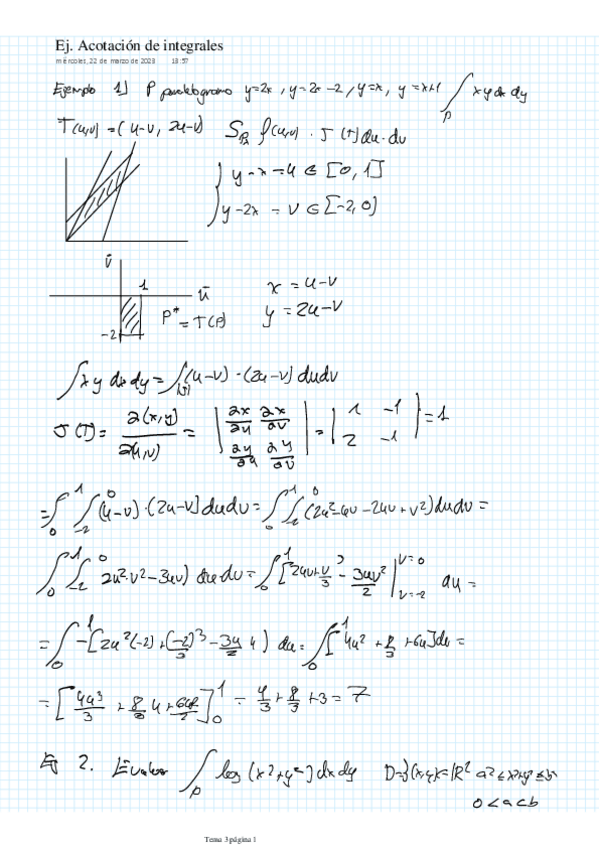 Ej. Acotación de integrales
miércoles, 22 de marzo de 2023 18:57
Ejemplo 1) P paralelogramo y=2x, y=2x-2, y=x, y=x+1 ∫_P xy dx dy
T(u,v) = (u-v, 2u-v) S_R f(u,v) · J(T) du·dv
{ y-x = u ∈ [0,1]
y-2x = v ∈ [-2,0]
v̄
1 ū
-2
P* = T(P)
x = u-v
y = 2u-v
∫xy dx dy = ∫(u-v)·(2u-v) du dv
J(T) = ∂(x,y)/∂(u,v) = | ∂x/∂u ∂x/∂v ; ∂y/∂u ∂y/∂v | = | 1 -1 ; 2 -1 | = 1
= ∫_0^1 ∫_{-2}^0 (u-v)·(2u-v) du dv = ∫_0^1 ∫_{-2}^0 (2u²-uv-2uv+v²) du dv =
∫_0^1 ∫_{-2}^0 2u²·v²-3uv) du dv = ∫_0^1 [2uv+v³/3 - 3uv²/2 |_{v=-2}^{v=0} du =
= ∫_0^1 -[2u²(-2)+(-2)³/3 - 3u/2 4) du = ∫_0^1 [4u² + 8/3 + 6u] du =
= [4u³/3 + 8/3 u + 6u²/2]_0^1 = 4/3 + 8/3 + 3 = 7
Ej 2. Evaluar ∫_D log(x²+y²) dx dy D={(x,y)∈ℝ² a²≤x²+y²≤b²
0<a<b
Tema 3 página 1